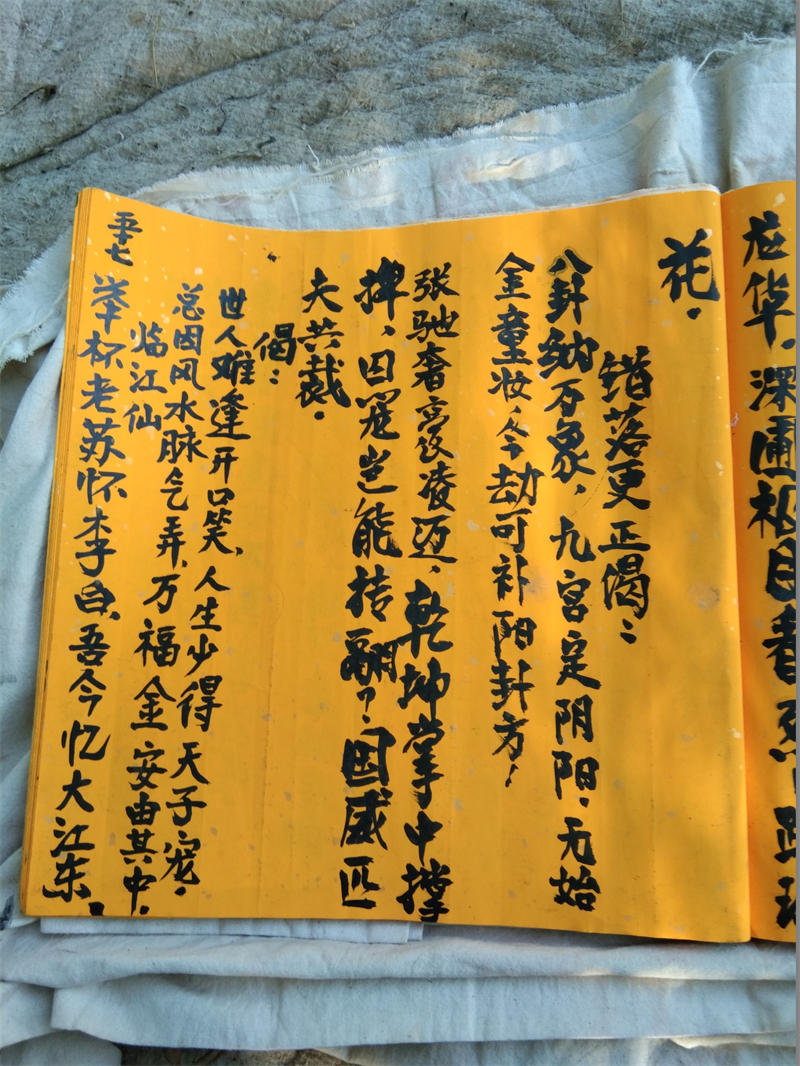 花。
错落更正偈：
八卦纳万象，九宫定阴阳。无始
金童妆，今劫可补阳卦方，
张驰奢豪凌迈，乾坤掌中撑
捭，囚笼岂能转翻？国威匹
夫共裁。
偈：
世人难逢开口笑，人生少得天子宠。
总因风水脉气弄，万福金安由其中。
临江仙
举杯老苏怀李白，吾今忆大江东。
五十七